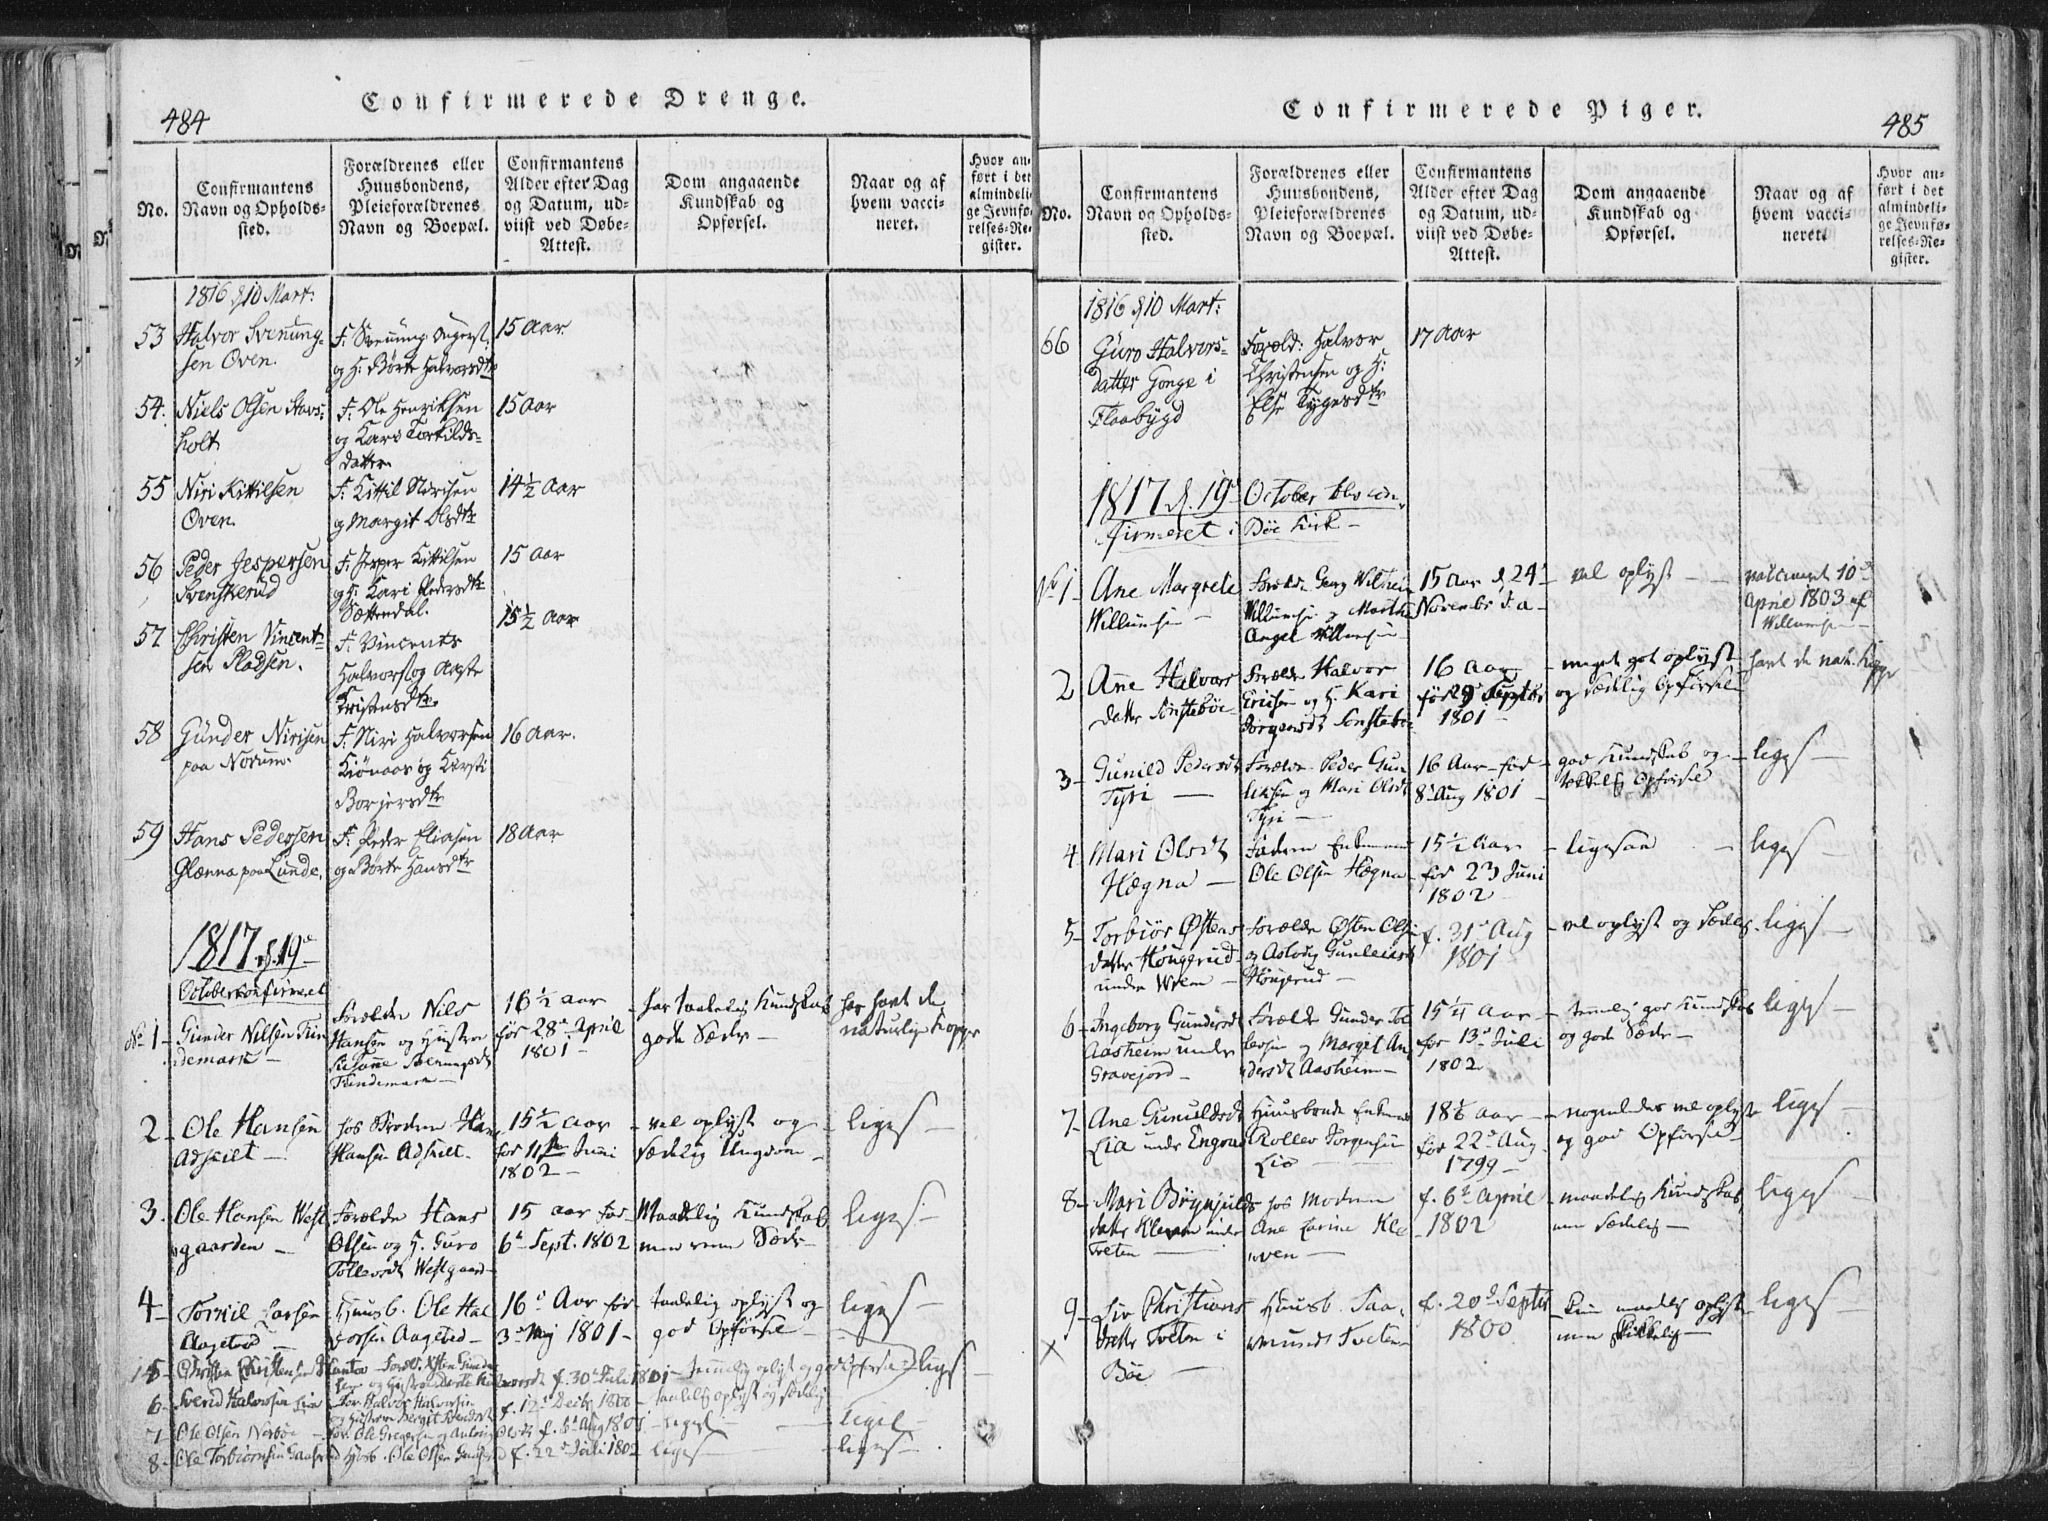 484
Confirmerede Drenge.
No.
Confirmantens
Navn og Opholds-
sted.
Forældrenes eller
Huusbondens,
Pleieforældrenes
Navn og Boepæl.
Confirmantens
Alder efter Dag
og Datum, ud-
viist ved Døbe-
Attest.
Dom angaaende
Kundskab og
Opførsel.
Naar og af
hvem vacci-
neret.
Hvor an-
ført i det
almindeli-
ge Jevnfø-
relses-Re-
gister.
1816 d 10 Mart:
53
Halvor Svenung-
sen Oven.
og H: Børte Halvorsdtr
15 Aar.
54.
Niels Olsen Stavs-
holt
F: Ole Henriksen
og Kari Torkilds-
datter
15 Aar
55
Niri Kittilsen
Oven.
F: Kittil Nirisen
og Margit Olsdtr
14½ Aar
56
Peder Jespersen
Svenskerud
F: Jesper Kittilsen
og H: Kari Pedersdtr
Sættendal.
15 Aar
57
Christen Vincent-
sen Pladsen.
F: Vincents
Halvors og Aaste
Kristensdtr.
15½ Aar
58
Gunder Nirisen
paa Norum.
F: Niri Halvorsen
Kiønaas og Kirsti
Borjersdtr
16 Aar.
59
Hans Pedersen
Glenna paa Lunde.
F: Peder Eliasen
og Børte Hansdtr
18 Aar
1817 d. 19d
October konfirmeret
No 1
Gunder Nilsen Tin
demark
Forældre Nils
Hansen og Hustroe
Tindemark
16½ aar
før 28d April
1801
har taalelig Kundskab
gode Sæder
har havt de
naturlige Kopper
2
Ole Hansen
Adskilt
hos Broderen Hans
Hansen Adskilt
15½ aar
før 11te Juni
1802
vel oplyst og
Sædelig Ungdom
liges
3.
Ole Hansen West
gaarden
Forældre Hans
Olsen og H. Guro
Tollevsdt Westgaard
15 aar før
6d Sept. 1802
Maadelig Kundskab
men rene Sæder
liges
4
Torkil Larsen
Aagetvd
Huusb. Ole Hal
vorsen Aagetvd
16d Aar før
3d Maj 1801
taalelig oplyst og
god Opførsel
liges
15
f. 30d Juli 1801
temmelig oplyst og god Opførsel
liges
6
Sverid Halvorsen Lia
For Halvor Halvorsen
f. 12d Decbr 1800
taalelig oplyst og sædelig
liges
7
Ole Olsen Nerbøe
For. Ole Gregersen og Aslaug Olsdt
f. 6d Aug 1801
liges
8
Ole Torbiornsen Gaaserud
Hosb. Ole Olsen Gaaserud
f. 22d Juli 1802
liges
liges
485
Confirmerede Piger.
No.
Confirmantens
Navn og Opholds-
sted.
Forældrenes eller
Huusbondens,
Pleieforældrenes
Navn og Boepæl.
Confirmantens
Alder efter Dag
og Datum, ud-
viist ved Døbe-
Attest.
Dom angaaende
Kundskab og
Opførsel.
Naar og af
hvem vacci-
neret.
Hvor an-
ført i det
almindeli-
ge Jevnfø-
relses-Re-
gister.
1816 d 10 Mart:
66
Guro Halvors-
datter Gonge i
Flaabygd
Foræld: Halvor
Christensen og H:
Else Tygesdtr
17 Aar
1817 d. 19d October blev con-
firmeret i Bøe Kirk
No 1
Ane Margrete
Willumsen
Foræld. Georg Wilhelm
Willumsen og Marthe
Angel Willumsen
15 Aar d 24d
Novembr d. a
vel oplyst
vaccineret 10d
April 1803 af
Willumsen
2
Ane Halvors
datter Sønstebøe
Foræld: Halvor
Ericsen og H. Kari
Jørgensdt Sønstebøe
16 Aar
før 29d Septbr
1801
meget got oplyst
og sædelig Opførsel
havt de nat. Kopper
3
Gunild Pedersdt
Tyri
Foræld: Peder Gun
leksen og Mari Olsdt
Tyri
16 Aar før
8d Aug 1801
god Kundskab og
Opførsel
liges
4
Mari Olsdt
Hægna
Faderen Enkemand
Ole Olsen Hægna
15½ Aar
før 23 Juni
1802
ligesaa
liges
5
Torbiør Østens
datter Høugerud
under Wreim
Foræld: Østen Olsen
og Aslaug Gunleiksdt
Høugerud
f. 31d Aug
1801
vel oplyst og Sædelig
liges
6
Ingeborg Gundersdt
Aasheim under
Gravejord
Foræld: Gunder Tol
lefsen og Margit An
dersdt Aasheim
15¼ Aar
før 13d Juli
1802
temmelig god Kundskab
og gode Sæder
liges
7
Ane Gunuldsdt
Lia under Engrav
Huusbonde Enkemd
Rollev Jørgensen
Lio
18⅙ aar
før 22d Aug
1799
nogenledes vel oplyst
og god Opførsel
liges
8
Mari Brynjulds
datter Kleven under
Tveten
hos Moderen
Ane Larine Kle
ven
f. 6d April
1802
maadelig Kundskab
men sædelig
liges
9
Liv Christians
datter Tveten i
Bøe
Huusb. Saa-
mund Tveten
f. 20d Septbr
1800
kun maadelig oplyst
men skikkelig
liges